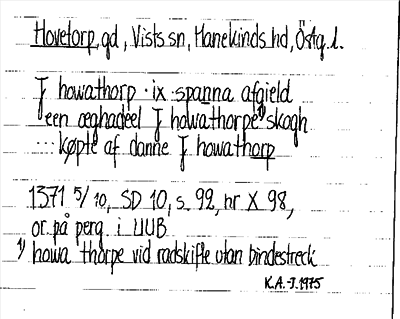 Hovetorp, gd, Vists sn, Hanekinds hd, Östg. l.
J howathorp · ix spanna afgield
een æghadeel J howathorpe¹⁾ skogh
... køpte af danne J howathorp
1371 5/10, SD 10, s 92, nr X 98,
or. på perg. i UUB
¹⁾ howa thorpe vid radskifte utan bindestreck
K.A.-J. 1975